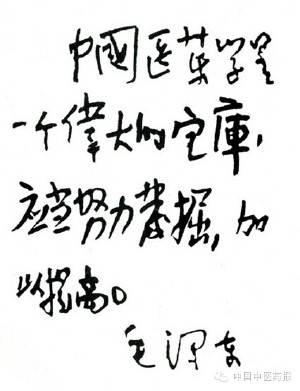 中國医药学是
一个偉大的宝庫，
应当努力發掘，加
以提高。
毛泽东
中国中医药报